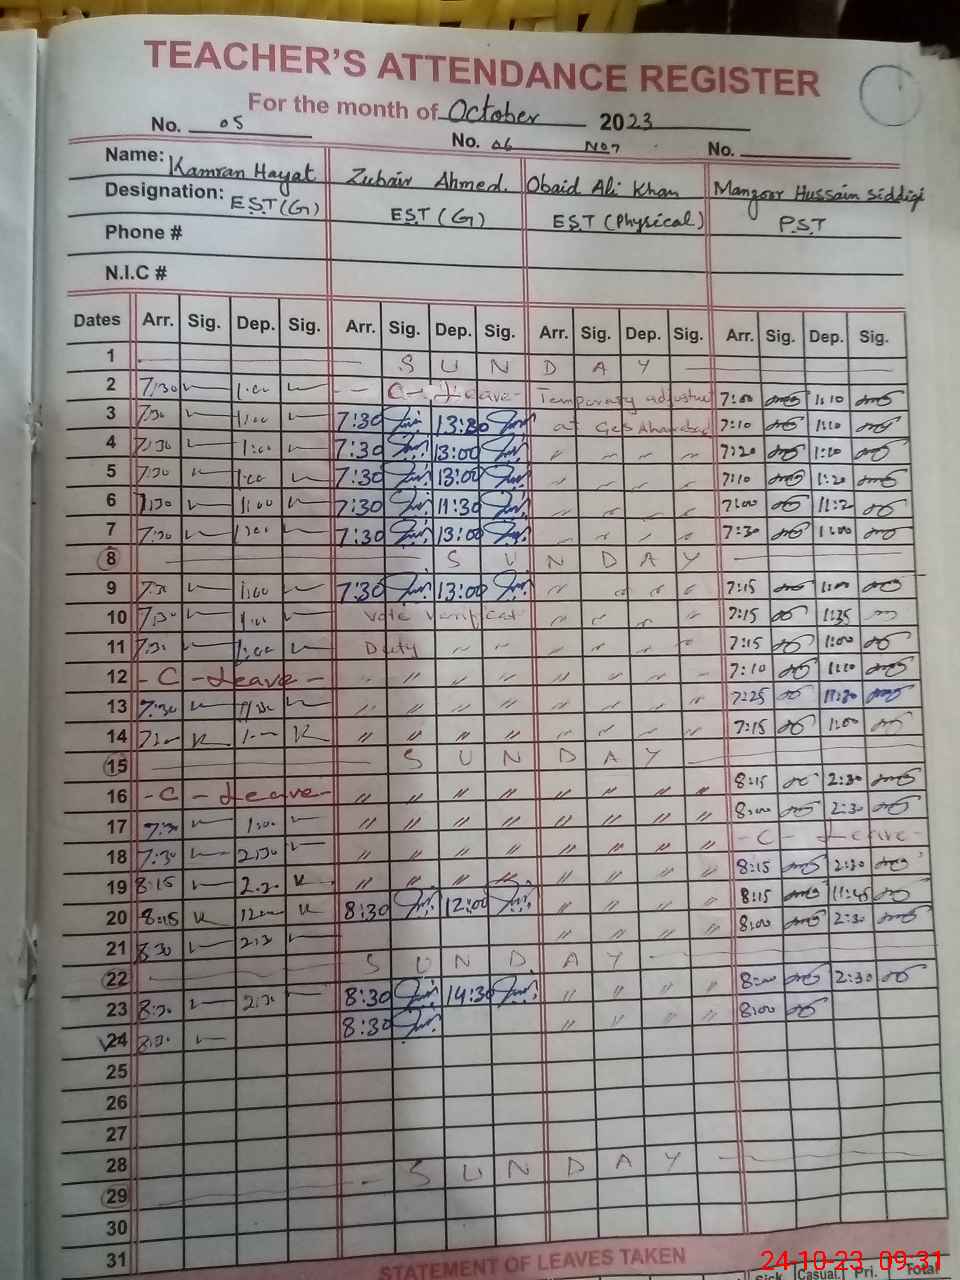 TEACHER'S ATTENDANCE REGISTER
For the month of October 2023
No. 05 No. 06 No 7 No.
Name: Kamran Hayat Zubair Ahmed. Obaid Ali Khan Manzoor Hussain Siddiqi
Designation: EST (G) EST (G) EST (Physical) P.S.T
Phone #
N.I.C #
Dates Arr. Sig. Dep. Sig. Arr. Sig. Dep. Sig. Arr. Sig. Dep. Sig. Arr. Sig. Dep. Sig.
1 S U N D A Y
2 7:30 1:00 - C - Leave - Temporary 7:00 1:10
3 7:30 1:00 7:30 13:30 at 7:10 1:10
4 7:30 1:00 7:30 13:00 " " " " 7:20
5 7:30 1:00 7:30 13:00 " " " " 7:10 1:20
6 7:30 1:00 7:30 11:30 " " " " 7:00 11:30
7 7:30 1:00 7:30 13:00 " " " " 7:30
8 S U N D A Y
9 7:30 1:00 7:30 13:00 " " " " 7:15 1:00
10 7:30 1:00 Vote " " " " 7:15 1:35
11 7:30 1:00 Duty " " " " " " 7:15 1:00
12 - C - Leave - " " " " " " " " 7:10
13 7:30 " " " " " " " " 7:25 11:30
14 " " " " " " " " 7:15 1:00
15 S U N D A Y
16 - C - Leave - " " " " " " " " 8:15 2:30
17 7:30 1:00 " " " " " " " " 8:00 2:30
18 7:30 2:30 " " " " " " " " - C - Leave -
19 8:15 2:30 " " " " " " " " 8:15 2:30
20 8:15 8:30 12:00 " " " " 8:15 11:45
21 8:30 2:30 " " " " 8:00 2:30
22 S U N D A Y
23 8:30 2:30 8:30 14:30 " " " " 8:00 2:30
24 8:30 8:30 " " " " 8:00
25
26
27
28
29 S U N D A Y
30
31
STATEMENT OF LEAVES TAKEN
Sick Casual. Pri. Total
24-10-23 09:31